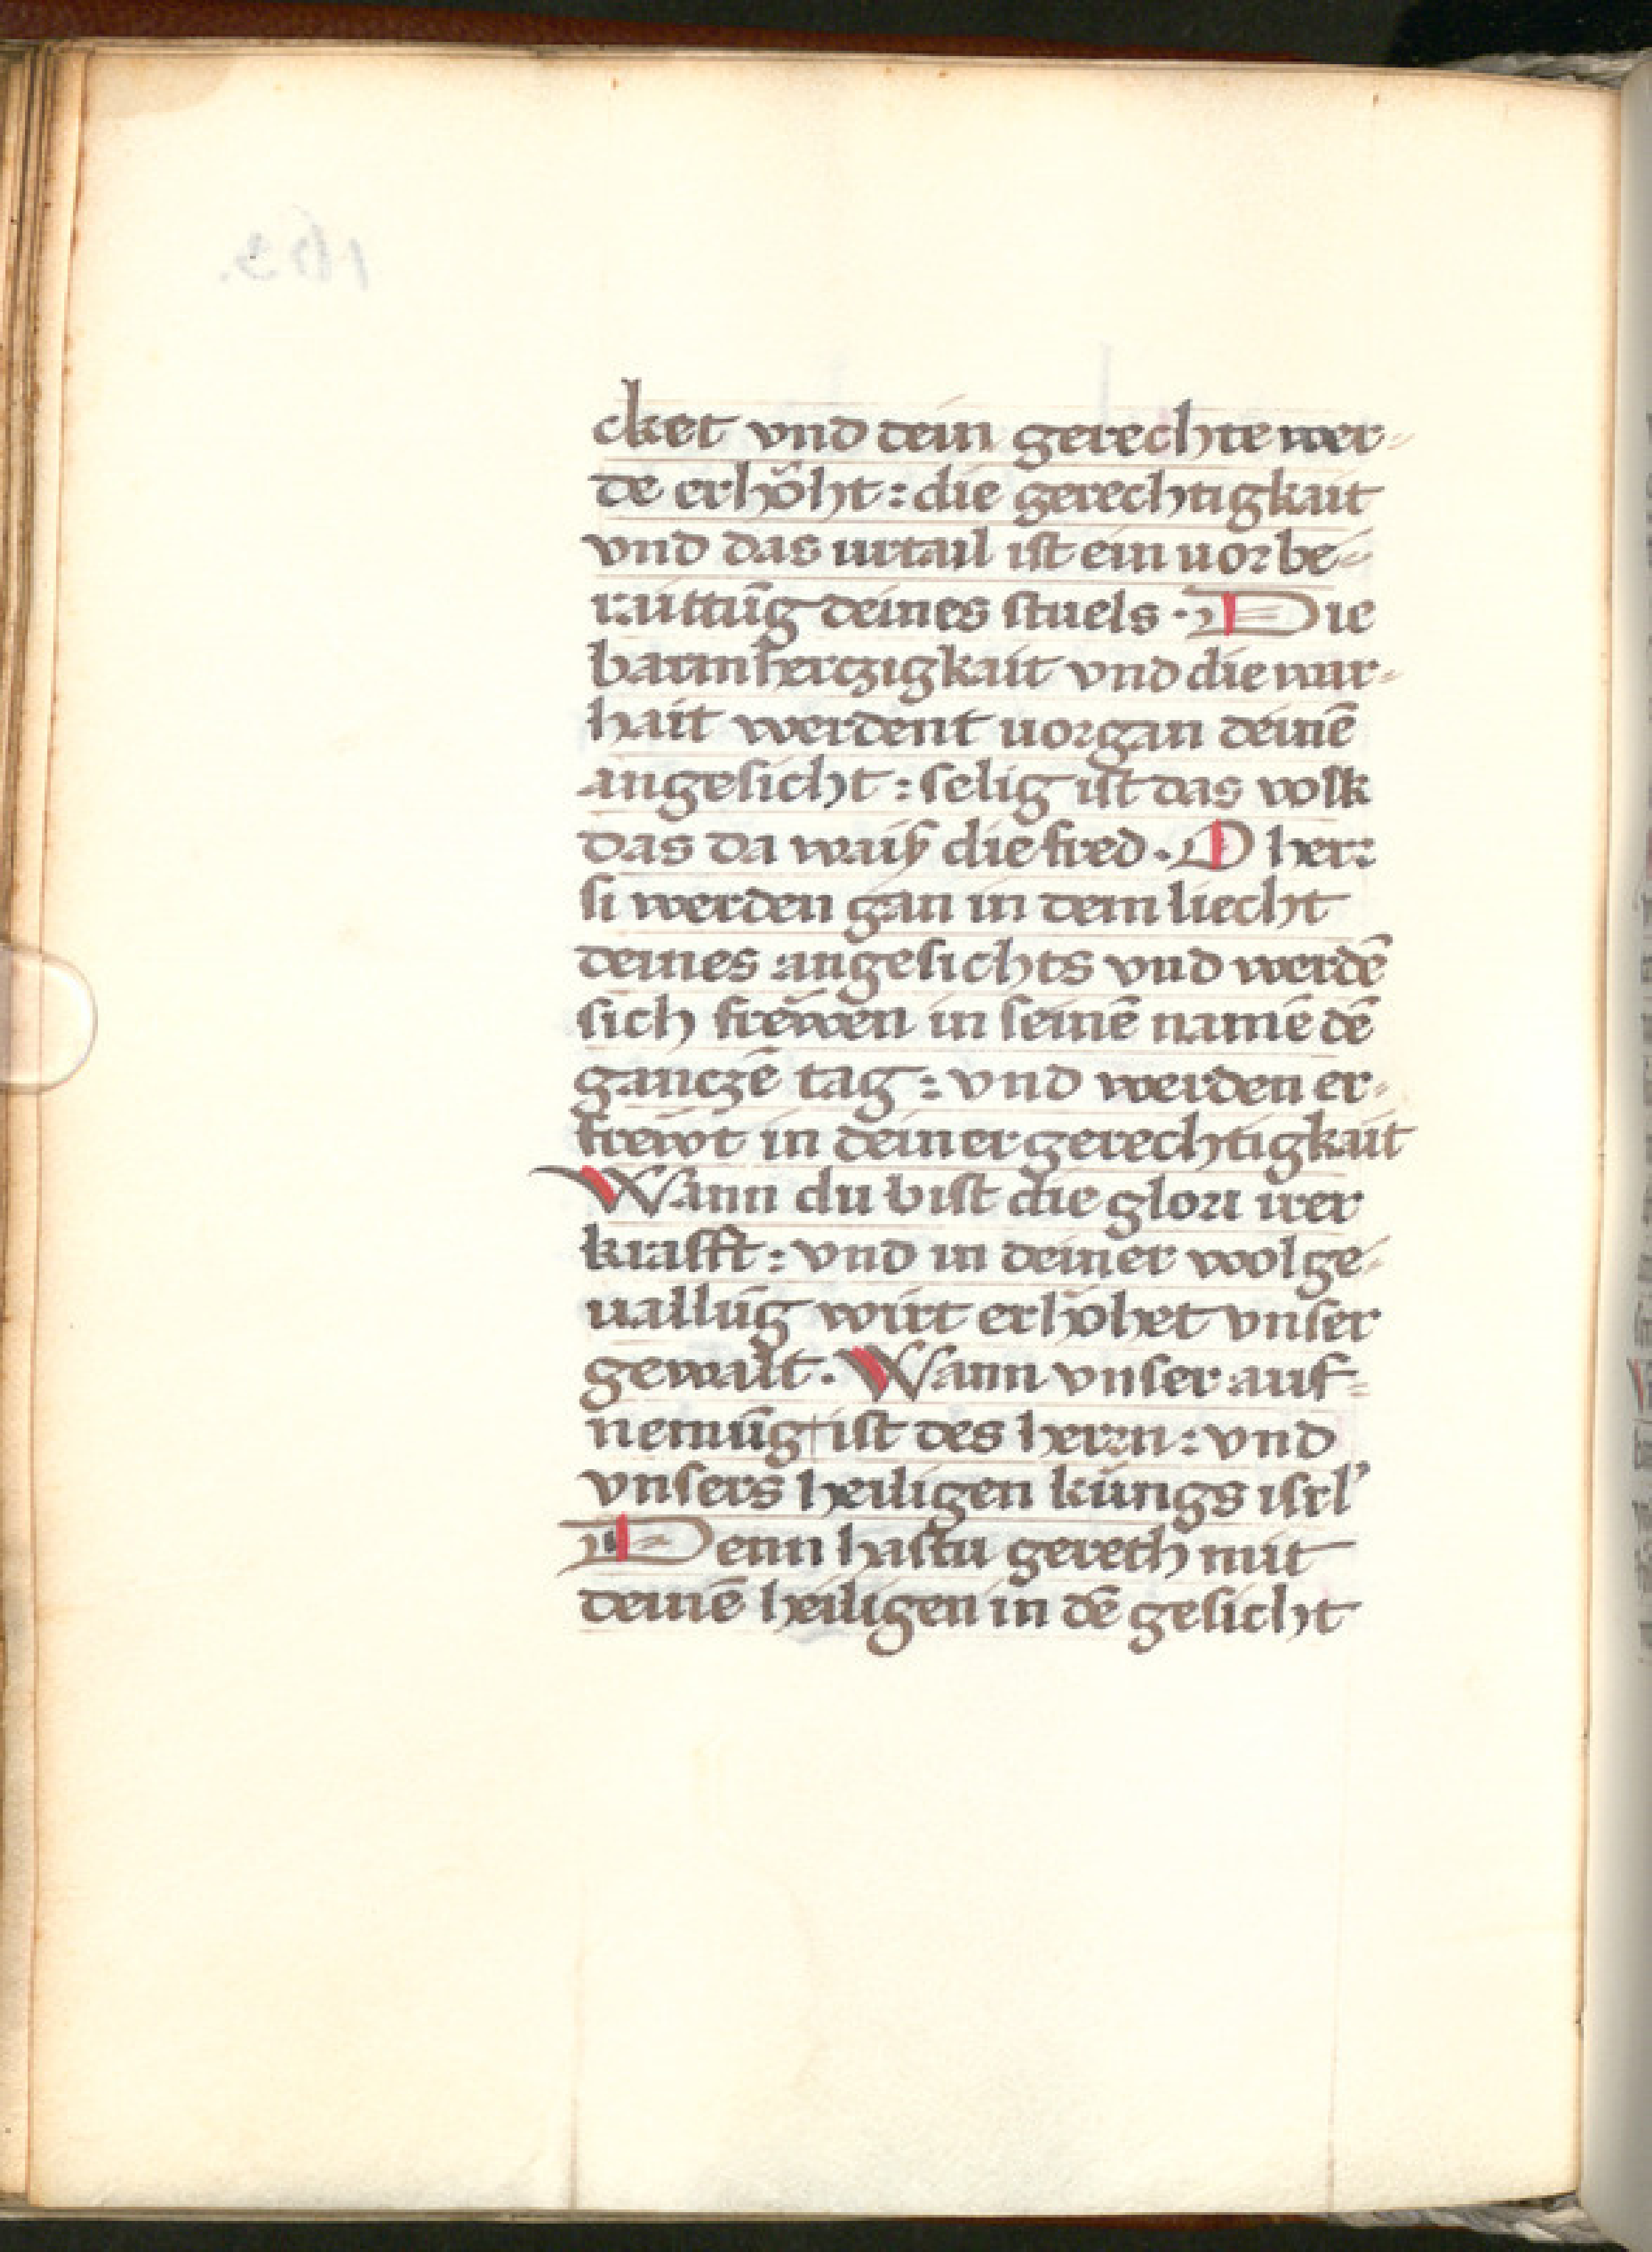 cket vnd dein gerechte wer-
de erhöht : die gerechtigkait
vnd das urtail ist ein uor be-
raittūg deines stuels · Die
barmhertzigkait vnd die war-
hait werdent uorgan deinē
angesicht : selig ist das volk
das da waiß die fred · O herr
si werden gan in dem liecht
deines angesichts vnd werdē
sich frëwen in seinē namē dē
ganczē tag : vnd werden er-
frëwt in deiner gerechtigkait
Wann du bist die glori irer
krafft : vnd in deiner wolge-
uallūg wirt erhöhet vnser
gewalt · Wann vnser auf-
nemūg ist des herrn : vnd
vnsers heiligen küngs isrl'
Denn hastu gereth mit
deinē heiligen in dē gesicht